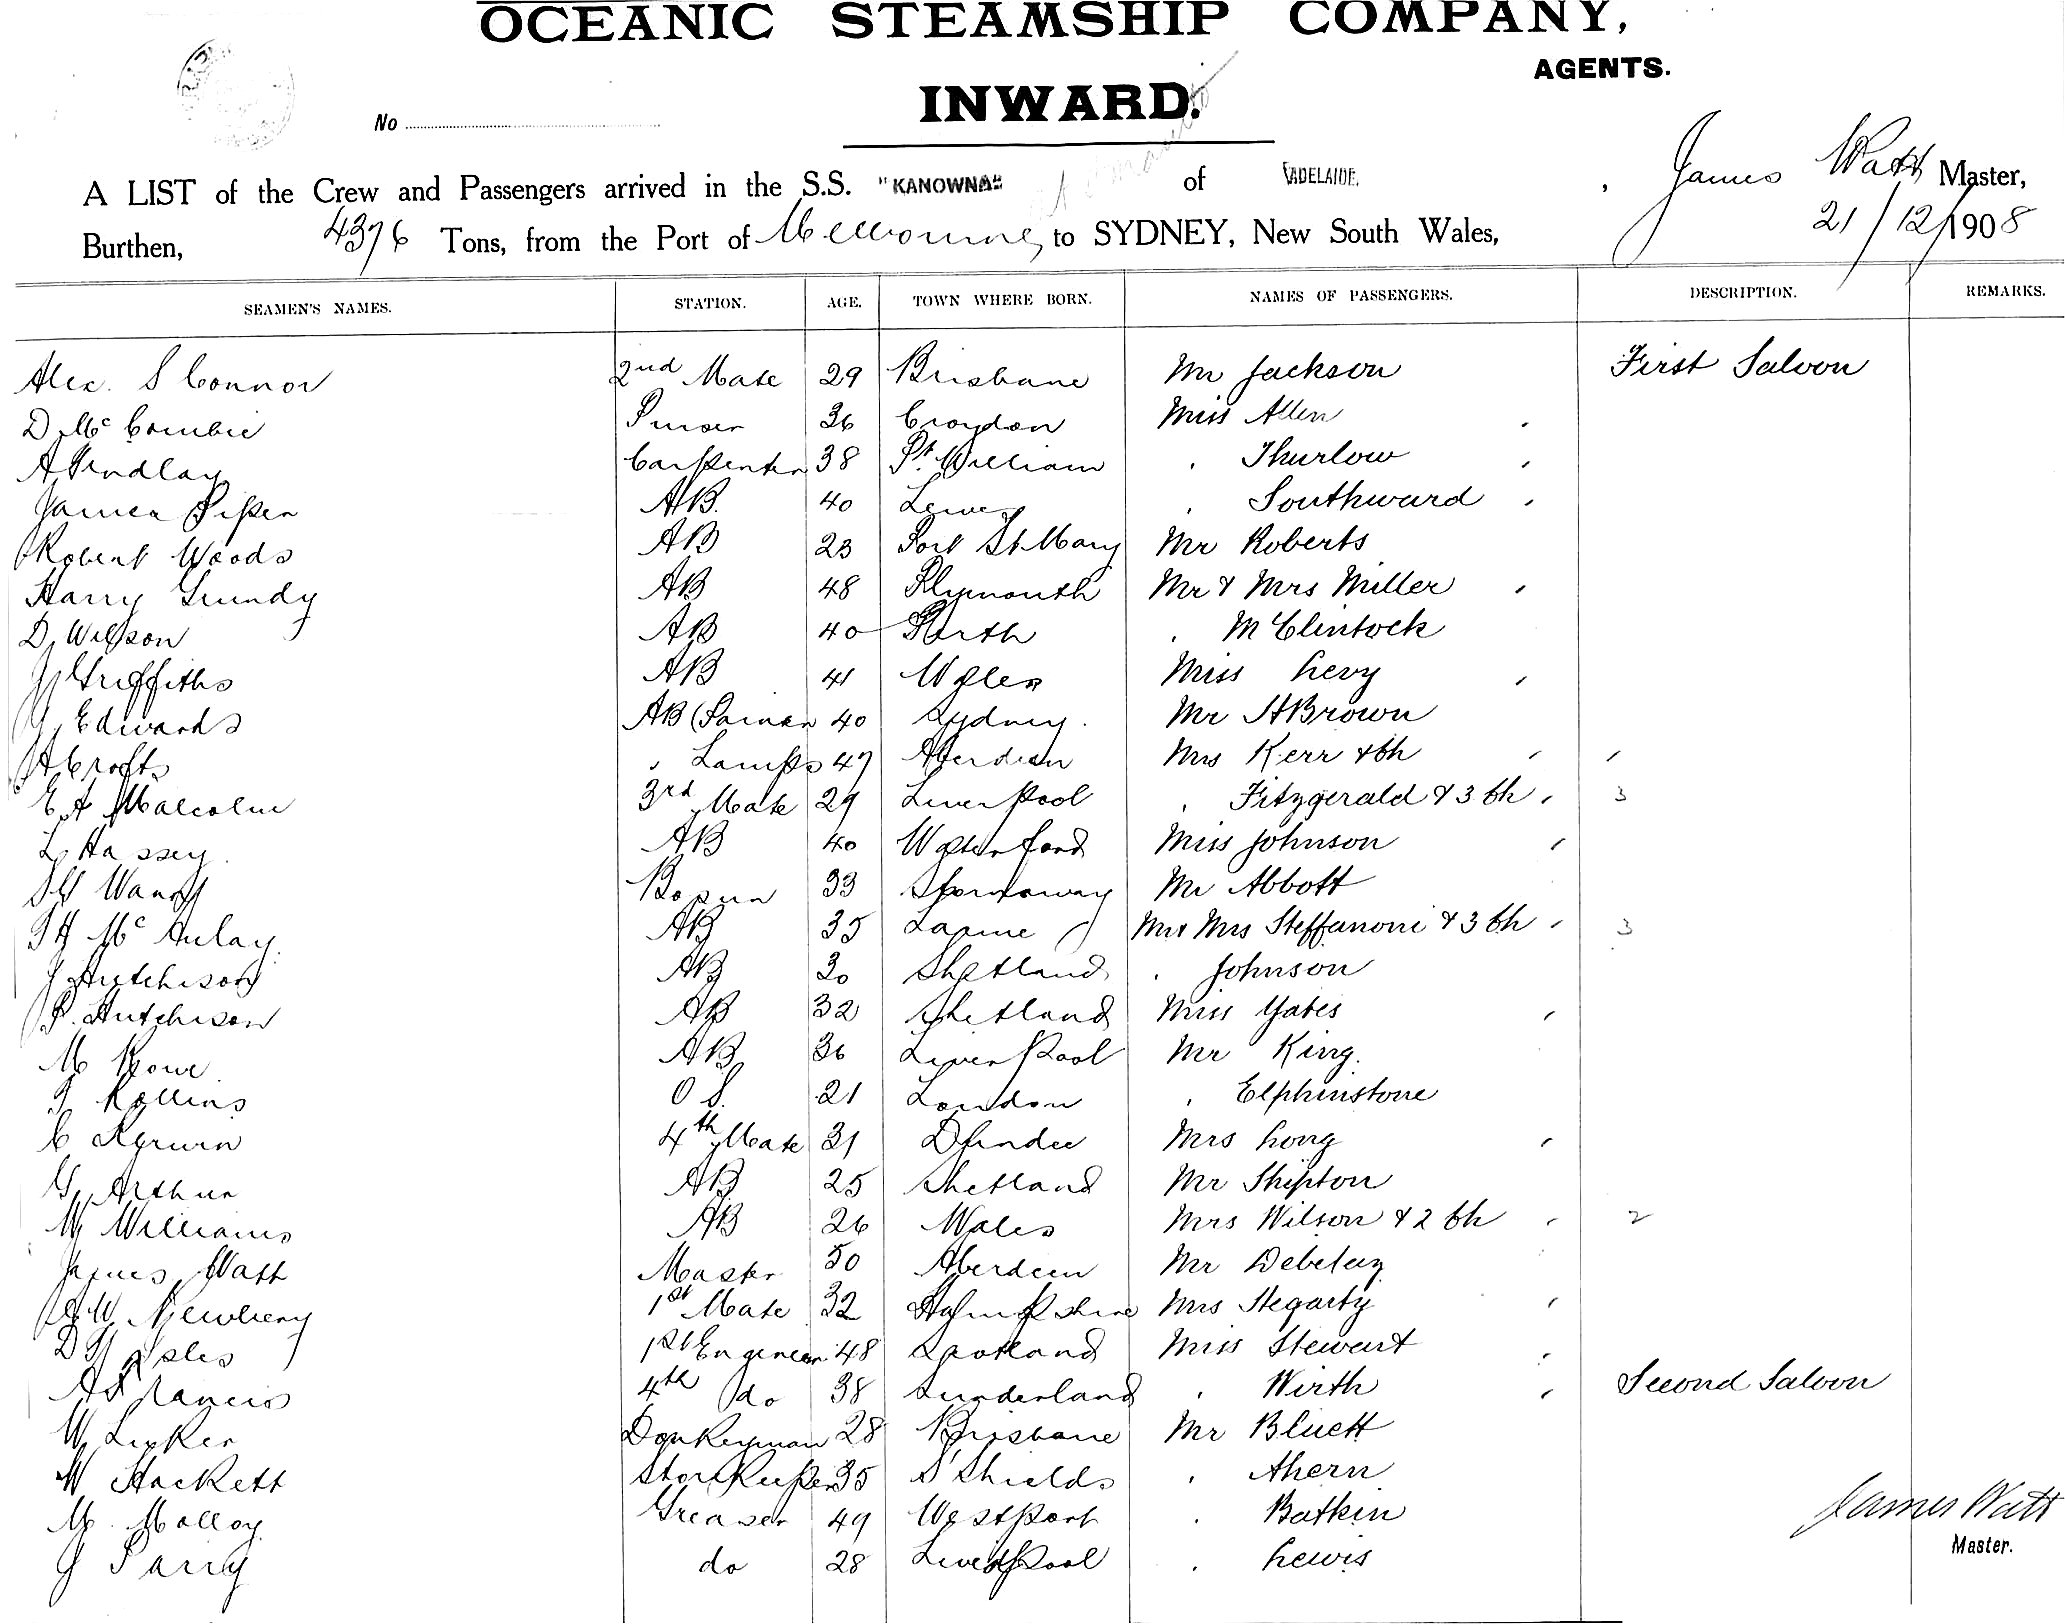 OCEANIC STEAMSHIP COMPANY,
AGENTS.
INWARD.
No
A LIST of the Crew and Passengers arrived in the S.S. "KANOWNA" of ADELAIDE, James Watt Master,
Burthen, 4376 Tons, from the Port of Melbourne to SYDNEY, New South Wales, 21/12/1908
SEAMEN'S NAMES. STATION. AGE. TOWN WHERE BORN. NAMES OF PASSENGERS. DESCRIPTION. REMARKS.
Alex. S Connor 2nd Mate 29 Brisbane Mr Jackson First Saloon
D McCombie Purser 36 Croydon Miss Allen
A Findlay Carpenter 38 Pt. William " Thurlow
James Piper AB. 40 " Southward
Robert Woods AB 23 Port St Mary Mr Roberts
Harry Grundy AB 48 Plymouth Mr & Mrs Miller
D Wilson AB 40 Perth " McClintock
J Griffiths AB 41 Wales Miss Levy
J Edwards AB 40 Sydney. Mr H Brown
A Crofts " Lamps 47 Aberdeen Mrs Kerr & Ch
E A Malcolm 3rd Mate 29 LiverPool " Fitzgerald & 3 Ch 3
L Hassey AB 40 Waterford Miss Johnson
Bosun 33 Stornoway Mr Abbott
McAulay AB 35 Mr & Mrs Steffanoni & 3 Ch 3
J Hutchison AB 30 Shetland " Johnson
P. Hutchison AB 32 Shetland Miss Yates
M Rowe AB 36 LiverPool Mr King.
Rollins O S. 21 London " Elphinstone
C Kerwin 4th Mate 31 Dundee Mrs Long
G Arthur AB 25 Shetland Mr Shipton
W Williams AB 26 Wales Mrs Wilson & 2 Ch 2
James Watt Master 50 Aberdeen Mr
W Newbery 1st Mate 32 HamPshire Mrs Hegarty
D 1st Engineer 48 Scotland Miss Stewart
A Francis 4th do 38 Sunderland " Wirth Second Saloon
W Donkeyman 28 Brisbane Mr Bluett
W Hackett StoreKeePer 35 S Shields " Ahern
M. Molloy Greaser 49 Westport " Batkin
J Parry do 28 LiverPool " Lewis
James Watt
Master.